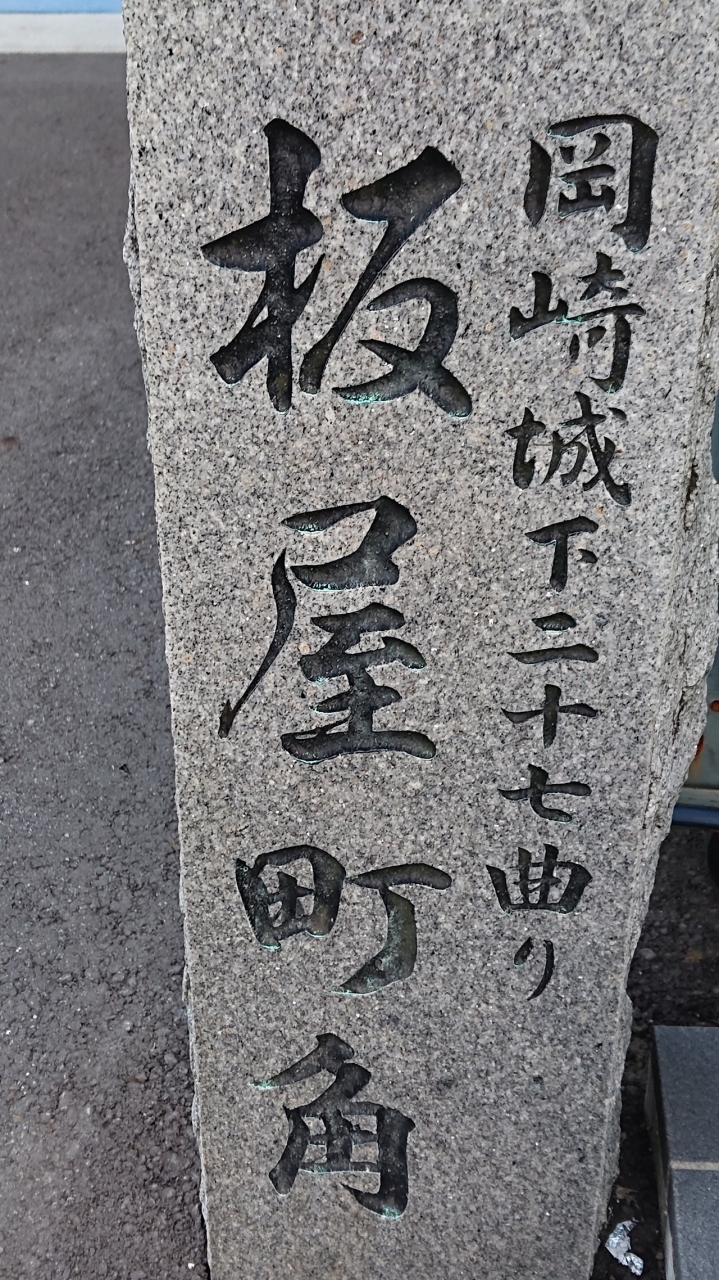 岡崎城下二十七曲り
板屋町角